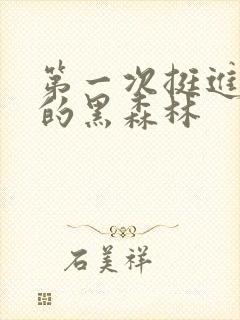 第一次挺进
的黑森林
石美祥